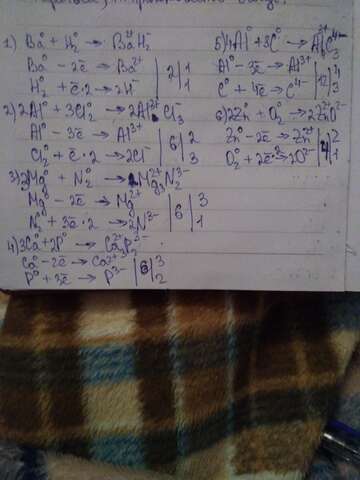 1) Ba⁰ + H₂⁰ → Ba²⁺H₂
Ba⁰ - 2ē → Ba²⁺ | 2 | 1
H₂⁰ + ē·2 → 2H⁻ | 1
2) 2Al⁰ + 3Cl₂⁰ → 2Al³⁺Cl₃
Al⁰ - 3ē → Al³⁺ | 6 | 2
Cl₂⁰ + ē·2 → 2Cl⁻ | 3
3) 3Mg⁰ + N₂⁰ → Mg₃²⁺N₂³⁻
Mg⁰ - 2ē → Mg²⁺ | 6 | 3
N₂⁰ + 3ē·2 → 2N³⁻ | 1
4) 3Ca⁰ + 2P⁰ → Ca₃²⁺P₂³⁻
Ca⁰ - 2ē → Ca²⁺ | 6 | 3
P⁰ + 3ē → P³⁻ | 2
5) 4Al⁰ + 3C⁰ → Al₄³⁺C₃⁴⁻
Al⁰ - 3ē → Al³⁺ | 12 | 4
C⁰ + 4ē → C⁴⁻ | 3
6) 2Zn⁰ + O₂⁰ → 2Zn²⁺O²⁻
Zn⁰ - 2ē → Zn²⁺ | 4 | 2
O₂⁰ + 2ē·2 → 2O²⁻ | 1